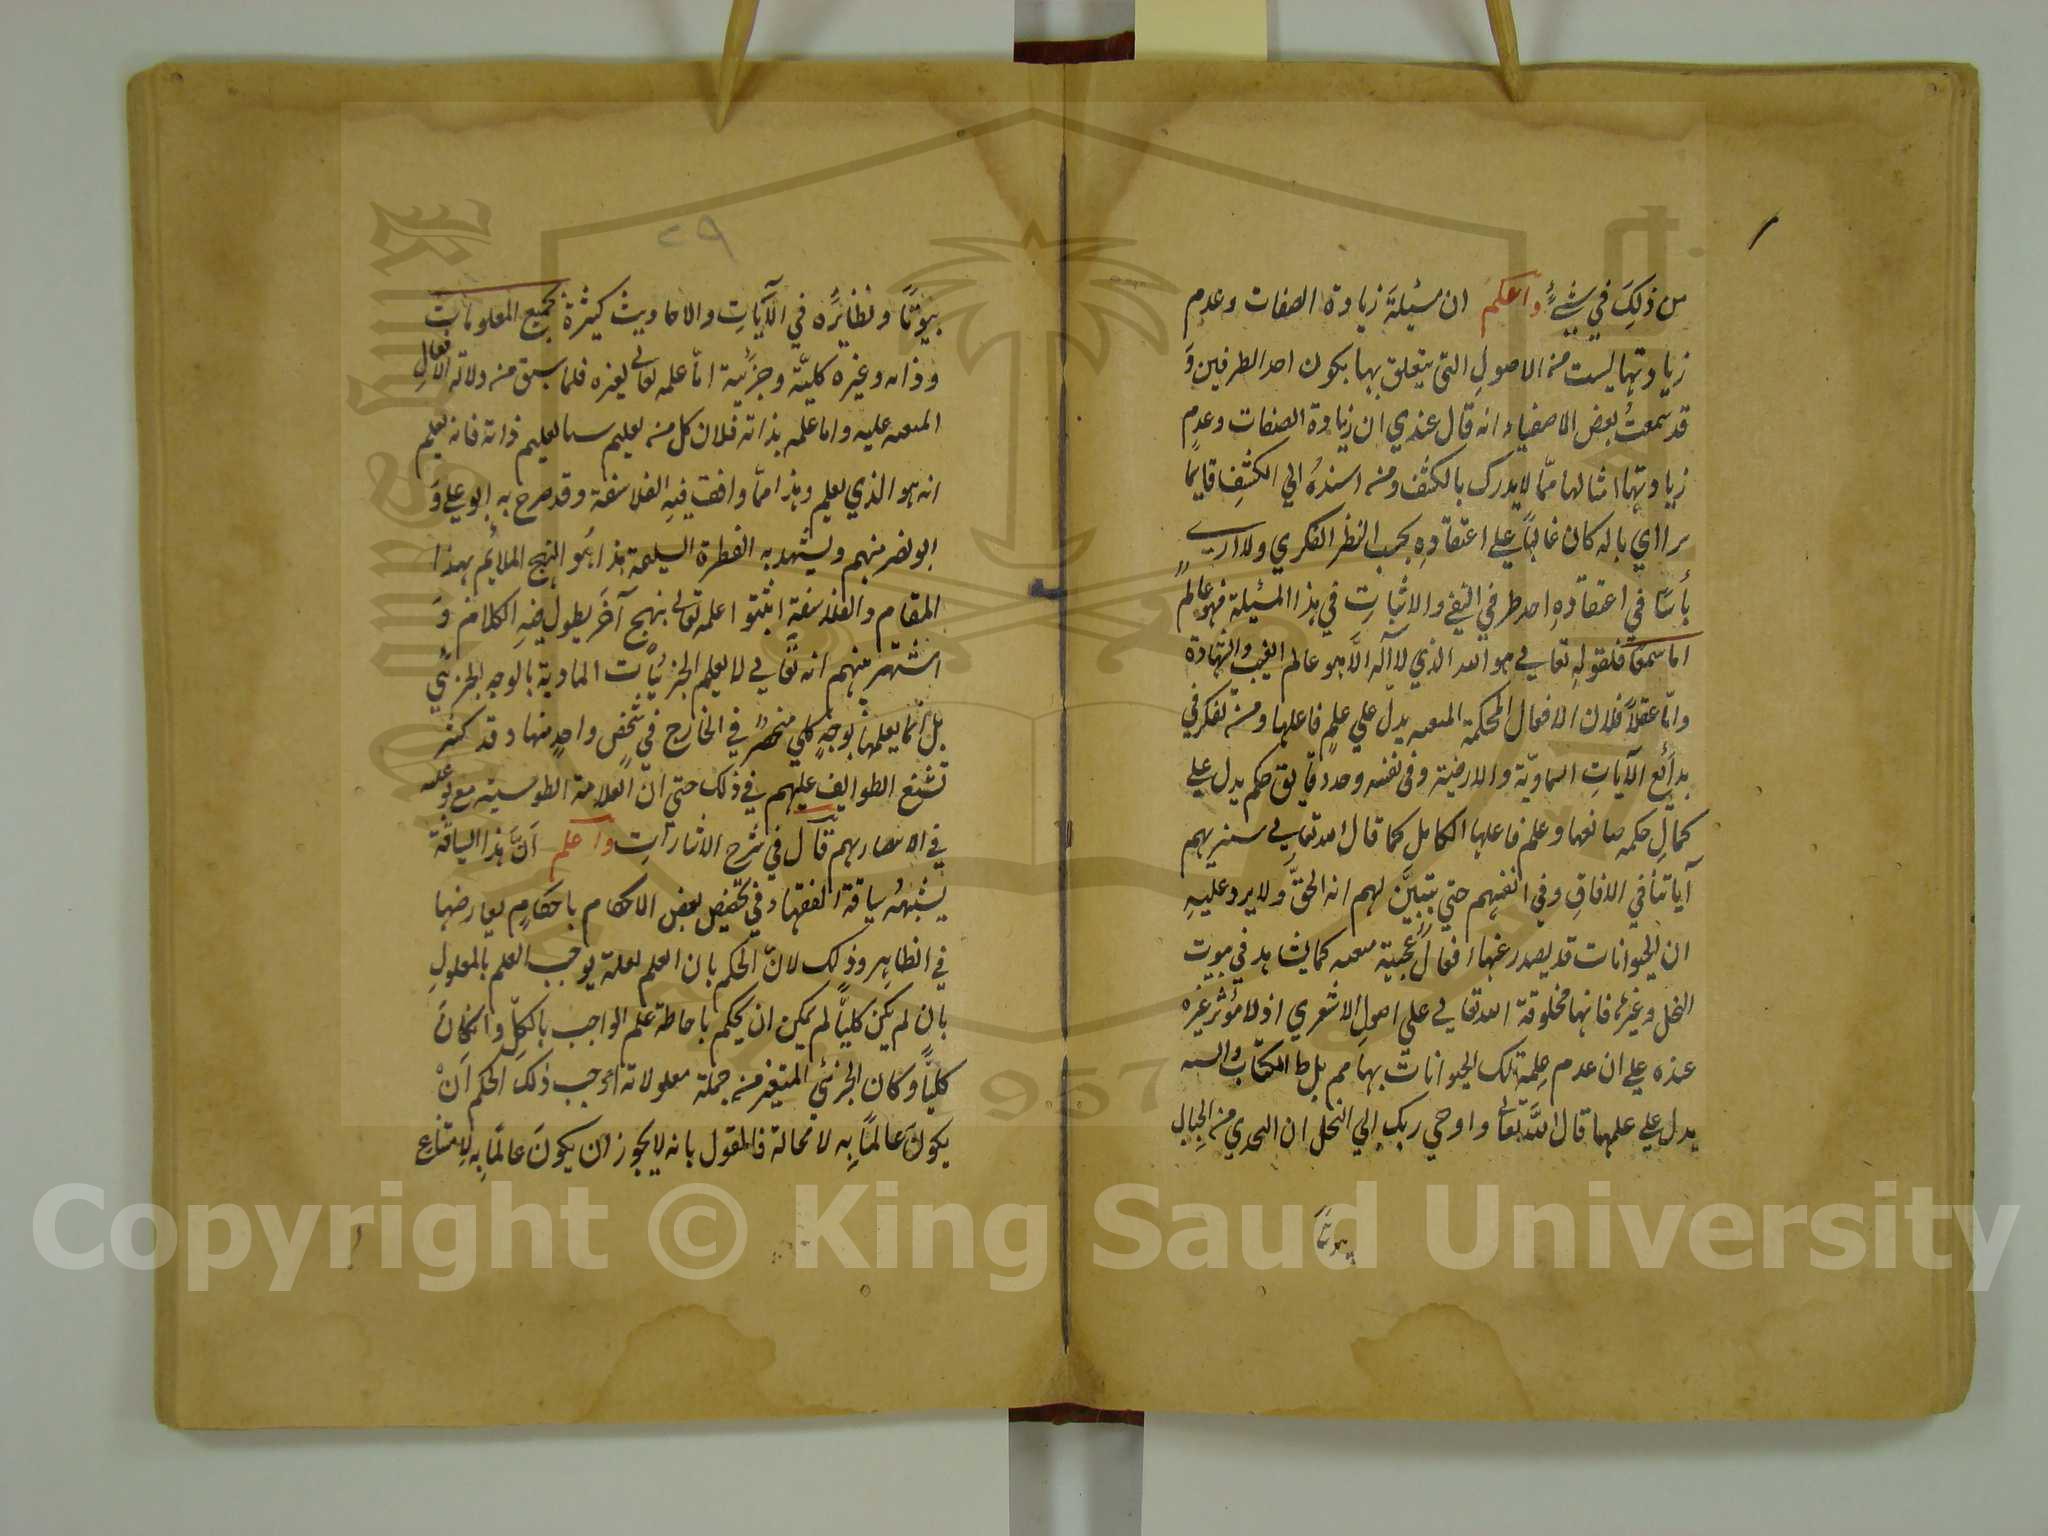 من ذلك في شيءٍ واعلم ان مسئلة زيادة الصفات وعدم
زيادتها ليست من الاصول التي يتعلق بها بكون احد الطرفين وَ
قد سمعتُ بعض الاصفياء انه قال عندي ان زيادة الصفات وعدم
زيادتها وامثالها ممّا لا يدرك بالكشف ومن اسنده الي الكشف فانما
يرااي باله كان غالبًا علي اعتقاده بحسب النظر الفكري ولا اري
بأسًا في اعتقاده احد طرفي النفي والاثبات في هذا المسئلة فهو عالمٌ
اما سمعًا فلقوله تعالي هو الله الذي لا اله الا هو عالم الغيب والشهادة
وامّا عقلاً فلان الافعال المحكمة المتقنه يدلّ علي علم فاعلها ومن تفكر في
بدائع الآيات السماويّة والارضية وفي نفسه وجد دقايق حكم يدل علي
كمال حكمه صانعها وعلم فاعلها الكامل كما قال الله تعالي سنريهم
آياتنا في الافاق وفي انفسهم حتي يتبيّن لهم انه الحقّ ولا يرد عليه
ان الحيوانات قد يصدر عنها افعالٌ عجيبة متقنه كما يشاهد في بيوت
النحل وغيرها فانها مخلوقة الله تعالي علي اصول الاشعري اذ لا مؤثر غيره
عنده علي ان عدم علمية تلك الحيوانات بها مم بل ظ الكتاب والسنه
يدل علي علمها قال الله تعالي واوحي ربك الي النحل ان اتخذي من الجبال
بيوتًا
٢٩
بيوتًا ونظايره في الآيات والاحاديث كثيرة بجميع المعلومات
وذاته وغيره كليّة وجزئية امّا علمه تعالي لغيره فلما سبق من دلالة الافعال
المتقنه عليه واما علمه بذاته فلان كل من يعلم شيا يعلم ذاته فانه يعلم
انه هو الذي يعلم وهذا ممّا وافقت فيه الفلاسفة وقد صرح به ابو علي وَ
ابو نصر منهم ويشهد به الفطرة السليمة هذا هُو النهج الملايم بهذا
المقام والفلاسفة اثبتوا علمه تعالي بنهج آخر يطول فيه الكلام وَ
اشتهر منهم انه تعالي لا يعلم الجزئيات المادية بالوجه الجزئي
بل انّما يعلمها بوجهٍ كلي منحصرٌ في الخارج في شخص واحدٍ منها وقد كثر
تشنيع الطوايف عليهم في ذلك حتي انّ العلامة الطوسيته مع توغله
في الانتصار بهم قال في شرح الاشارات واعلم انّ هذا السياقة
يشبه سياقة الفقهاء في تخصيص بعض الاحكام باحكامٍ يعارضها
في الظاهر وذلك لانّ الحكم بان العلم لعلة يوجب العلم بالمعلول
بان لم يكن كليًّا لم يمكن ان يحكم باحاطة علم الواجب بالكلّ وانكانَ
كليًّا وكان الجزئي المتغير من جملة معلولاته اوجب ذلك الحكم اَنْ
يكونَ عالمًا به لا محالة فالقول بانه لا يجوز ان يكونَ عالمًا به لامتناع
Copyright © King Saud University
1957